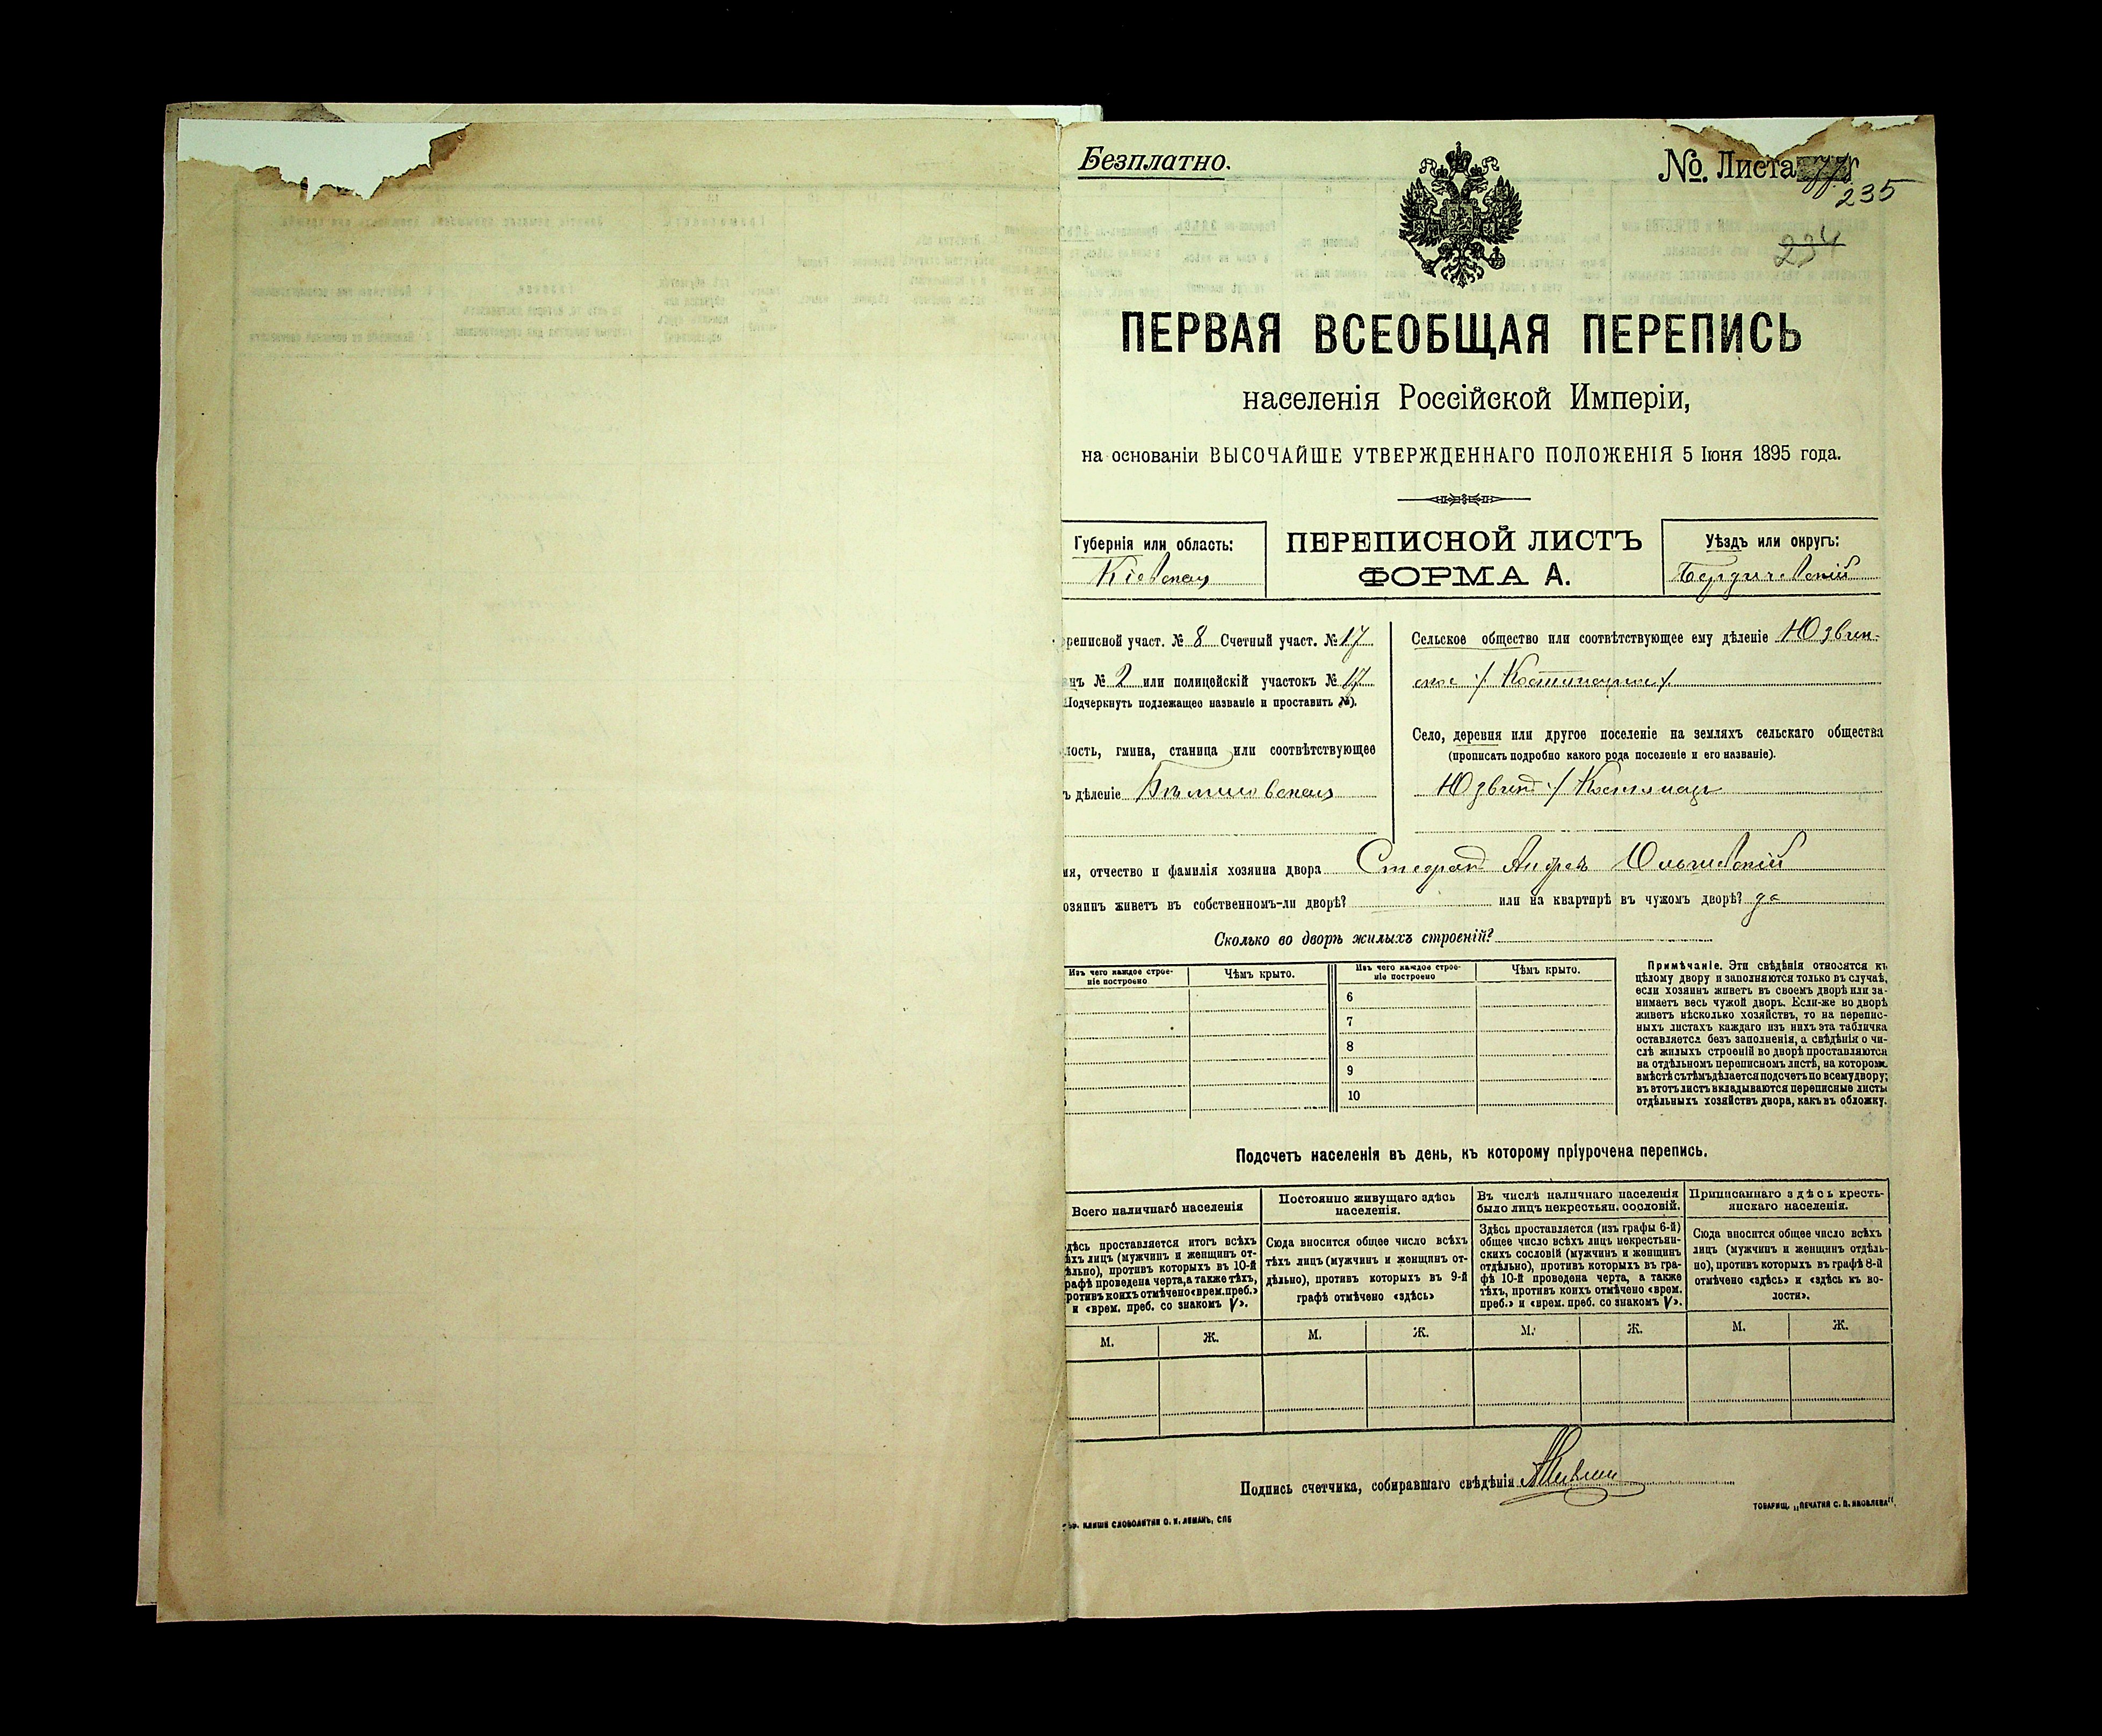 Безплатно.
№. Листа
235
234
ПЕРВАЯ ВСЕОБЩАЯ ПЕРЕПИСЬ
населенія Россійской Имперіи,
на основаніи ВЫСОЧАЙШЕ УТВЕРЖДЕННАГО ПОЛОЖЕНІЯ 5 Іюня 1895 года.
Губернія или область:
Кіевская
ПЕРЕПИСНОЙ ЛИСТЪ
ФОРМА А.
Уѣздъ или округъ:
Бердичевскій
реписной участ. № 8 Счетный участ. № 17
нъ № 2 или полицейскій участокъ № 17
Подчеркнуть подлежащее названіе и проставить №).
лость, гмина, станица или соотвѣтствующее
ъ дѣленіе Бѣлиловская
Сельское общество или соотвѣтствующее ему дѣленіе Юзвин-
ское
Село, деревня или другое поселеніе на земляхъ сельскаго общества
(прописать подробно какого рода поселеніе и его названіе).
Юзвинъ
мя, отчество и фамилія хозяина двора Стефанъ Андрев Ольшевскій
озяинъ живетъ въ собственномъ-ли дворѣ? или на квартирѣ въ чужомъ дворѣ? да
Сколько во дворѣ жилыхъ строеній?
Изъ чего каждое строе-
ніе построено
Чѣмъ крыто.
Изъ чего каждое строе-
ніе построено
Чѣмъ крыто.
6
7
8
9
10
Примѣчаніе. Эти свѣдѣнія относятся къ
цѣлому двору и заполняются только въ случаѣ,
если хозяинъ живетъ въ своемъ дворѣ или за-
нимаетъ весь чужой дворъ. Если-же во дворѣ
живетъ нѣсколько хозяйствъ, то на перепис-
ныхъ листахъ каждаго изъ нихъ эта табличка
оставляется безъ заполненія, а свѣдѣнія о чи-
слѣ жилыхъ строеній во дворѣ проставляются
на отдѣльномъ переписномъ листѣ, на которомъ
вмѣстѣ съ тѣмъ дѣлается подсчетъ по всему двору;
въ этотъ листъ вкладываются переписные листы
отдѣльныхъ хозяйствъ двора, какъ въ обложку.
Подсчетъ населенія въ день, къ которому пріурочена перепись.
Всего наличнаго населенія
дѣсь проставляется итогъ всѣхъ
ѣхъ лицъ (мужчинъ и женщинъ от-
ѣльно), противъ которыхъ въ 10-й
рафѣ проведена черта, а также тѣхъ,
ротивъ коихъ отмѣчено «врем. преб.»
и «врем. преб. со знакомъ V».
Постоянно живущаго здѣсь
населенія.
Сюда вносится общее число всѣхъ
тѣхъ лицъ (мужчинъ и женщинъ от-
дѣльно), противъ которыхъ въ 9-й
графѣ отмѣчено «здѣсь»
Въ числѣ наличнаго населенія
было лицъ некрестьян. сословій.
Здѣсь проставляется (изъ графы 6-й)
общее число всѣхъ лицъ некрестьян-
скихъ сословій (мужчинъ и женщинъ
отдѣльно), противъ которыхъ въ гра-
фѣ 10-й проведена черта, а также
тѣхъ, противъ коихъ отмѣчено «врем.
преб.» и «врем. преб. со знакомъ V».
Приписаннаго здѣсь кресть-
янскаго населенія.
Сюда вносится общее число всѣхъ
лицъ (мужчинъ и женщинъ отдѣль-
но), противъ которыхъ въ графѣ 8-й
отмѣчено «здѣсь» и «здѣсь къ во-
лости».
М. Ж. М. Ж. М. Ж. М. Ж.
Подпись счетчика, собиравшаго свѣдѣнія
КЛИШЕ СЛОВОЛИТНИ О. И. ЛЕМАНЪ, СПБ
ТОВАРИЩ. „ПЕЧАТНЯ С. П. ЯКОВЛЕВА".